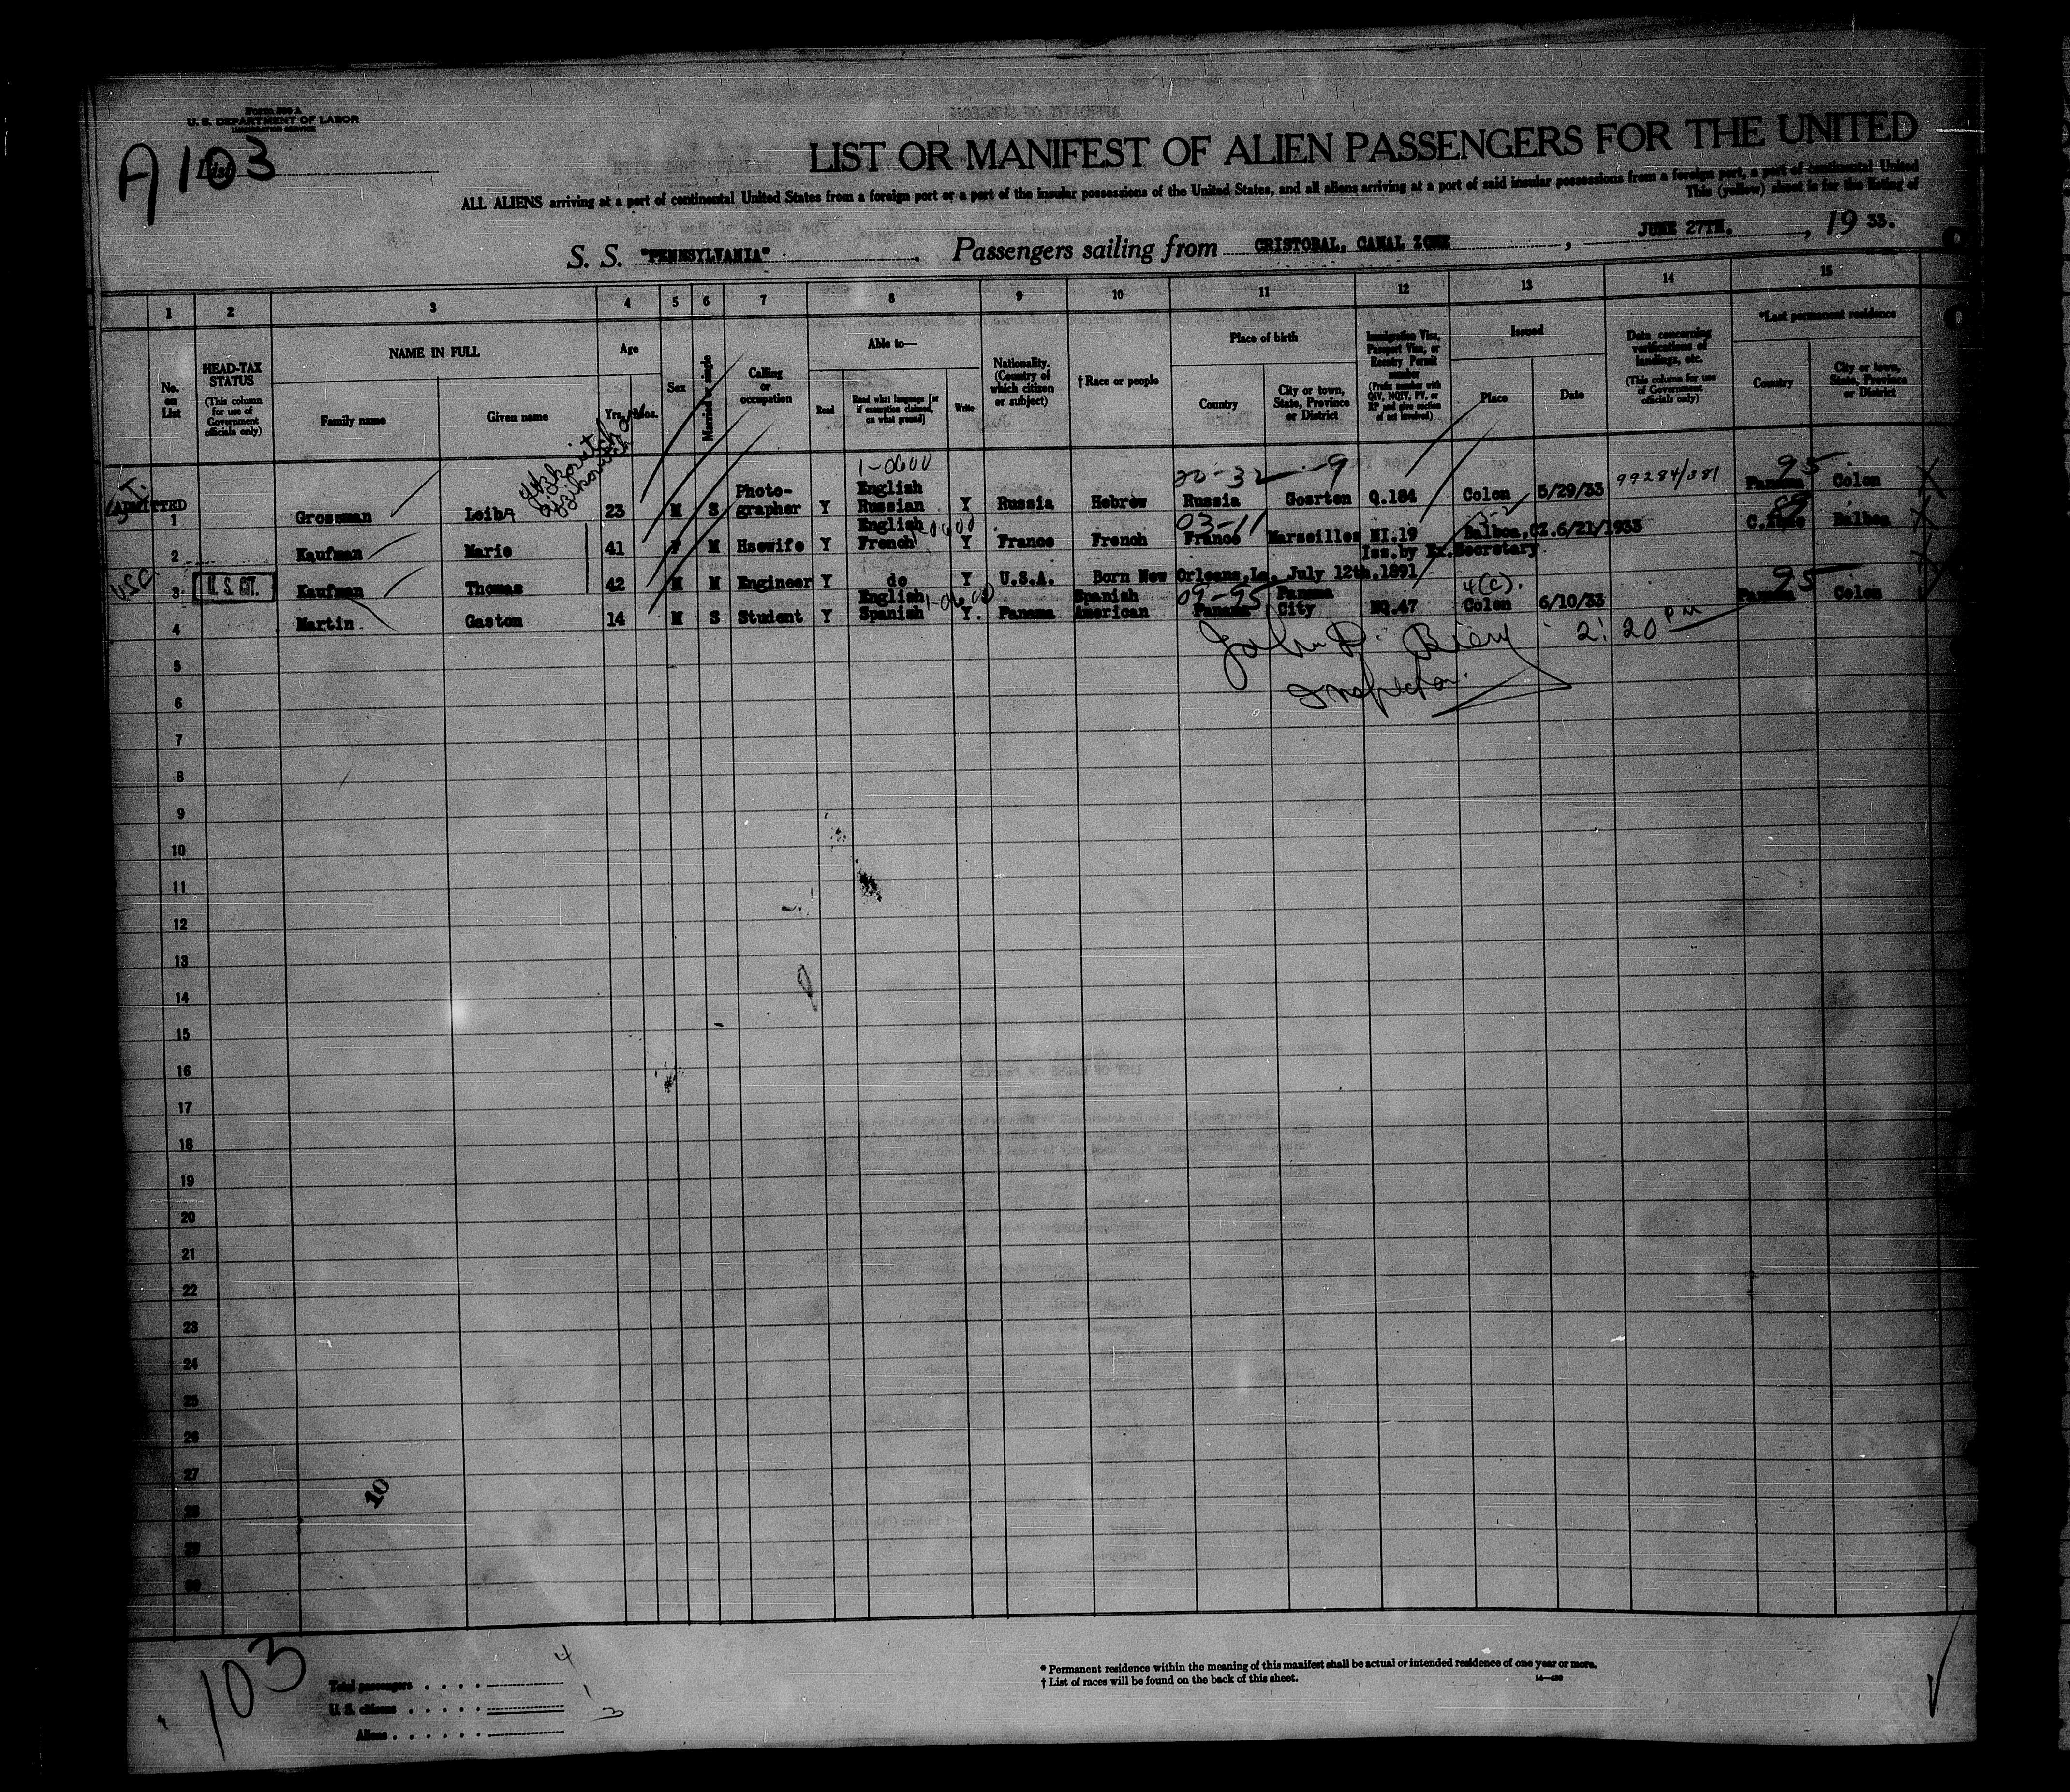 Form 500 A
U. S. DEPARTMENT OF LABOR
IMMIGRATION SERVICE
A 103
List
LIST OR MANIFEST OF ALIEN PASSENGERS FOR THE UNITED
ALL ALIENS arriving at a port of continental United States from a foreign port or a port of the insular possessions of the United States, and all aliens arriving at a port of said insular possessions from a foreign port, a port of continental United
This (yellow) sheet is for the listing of
S. S. "PENNSYLVANIA" Passengers sailing from CRISTOBAL, CANAL ZONE, JUNE 27TH., 19 33.
1 2 3 4 5 6 7 8 9 10 11 12 13 14 15
No. on List
HEAD-TAX STATUS (This column for use of Government officials only)
NAME IN FULL
Family name
Given name
Age
Yrs. Mos.
Sex
Married or single
Calling or occupation
Able to—
Read
Read what language [or if exemption claimed, on what ground]
Write
Nationality. (Country of which citizen or subject)
†Race or people
Place of birth
Country
City or town, State, Province or District
Immigration Visa, Passport Visa, or Reentry Permit number (Prefix number with QIV, NQIV, PV, or RP and give section of act involved)
Issued
Place
Date
Data concerning verifications of landings, etc. (This column for use of Government officials only)
*Last permanent residence
Country
City or town, State, Province or District
ADMITTED
1-0600 20-32 9 95
1 Grossman LeibA 23 M S Photo-grapher Y English Russian Y Russia Hebrew Russia Q.184 Colon 5/29/33 99284/381 Panama Colon
03-11
2 Kaufman Marie 41 F M Hsewife Y English French Y France French France Marseilles NI.19 Balboa,CZ.6/21/1933 C.Zone Balboa
Iss.by Ex.Secretary
USC 3 U. S. CIT. Kaufman Thomas 42 M M Engineer Y do Y U.S.A. Born New Orleans,La. July 12th.1891
4(c). 95
4 Martin Gaston 14 M S Student Y English Spanish Y. Panama Spanish American 09-95 Panama Panama City NQ.47 Colon 6/10/33 Panama Colon
2:20 PM
Inspector.
5
6
7
8
9
10
11
12
13
14
15
16
17
18
19
20
21
22
23
24
25
26
27
28
29
30
10
103
Total passengers 4
U. S. citizens 1
Aliens 3
* Permanent residence within the meaning of this manifest shall be actual or intended residence of one year or more.
† List of races will be found on the back of this sheet.